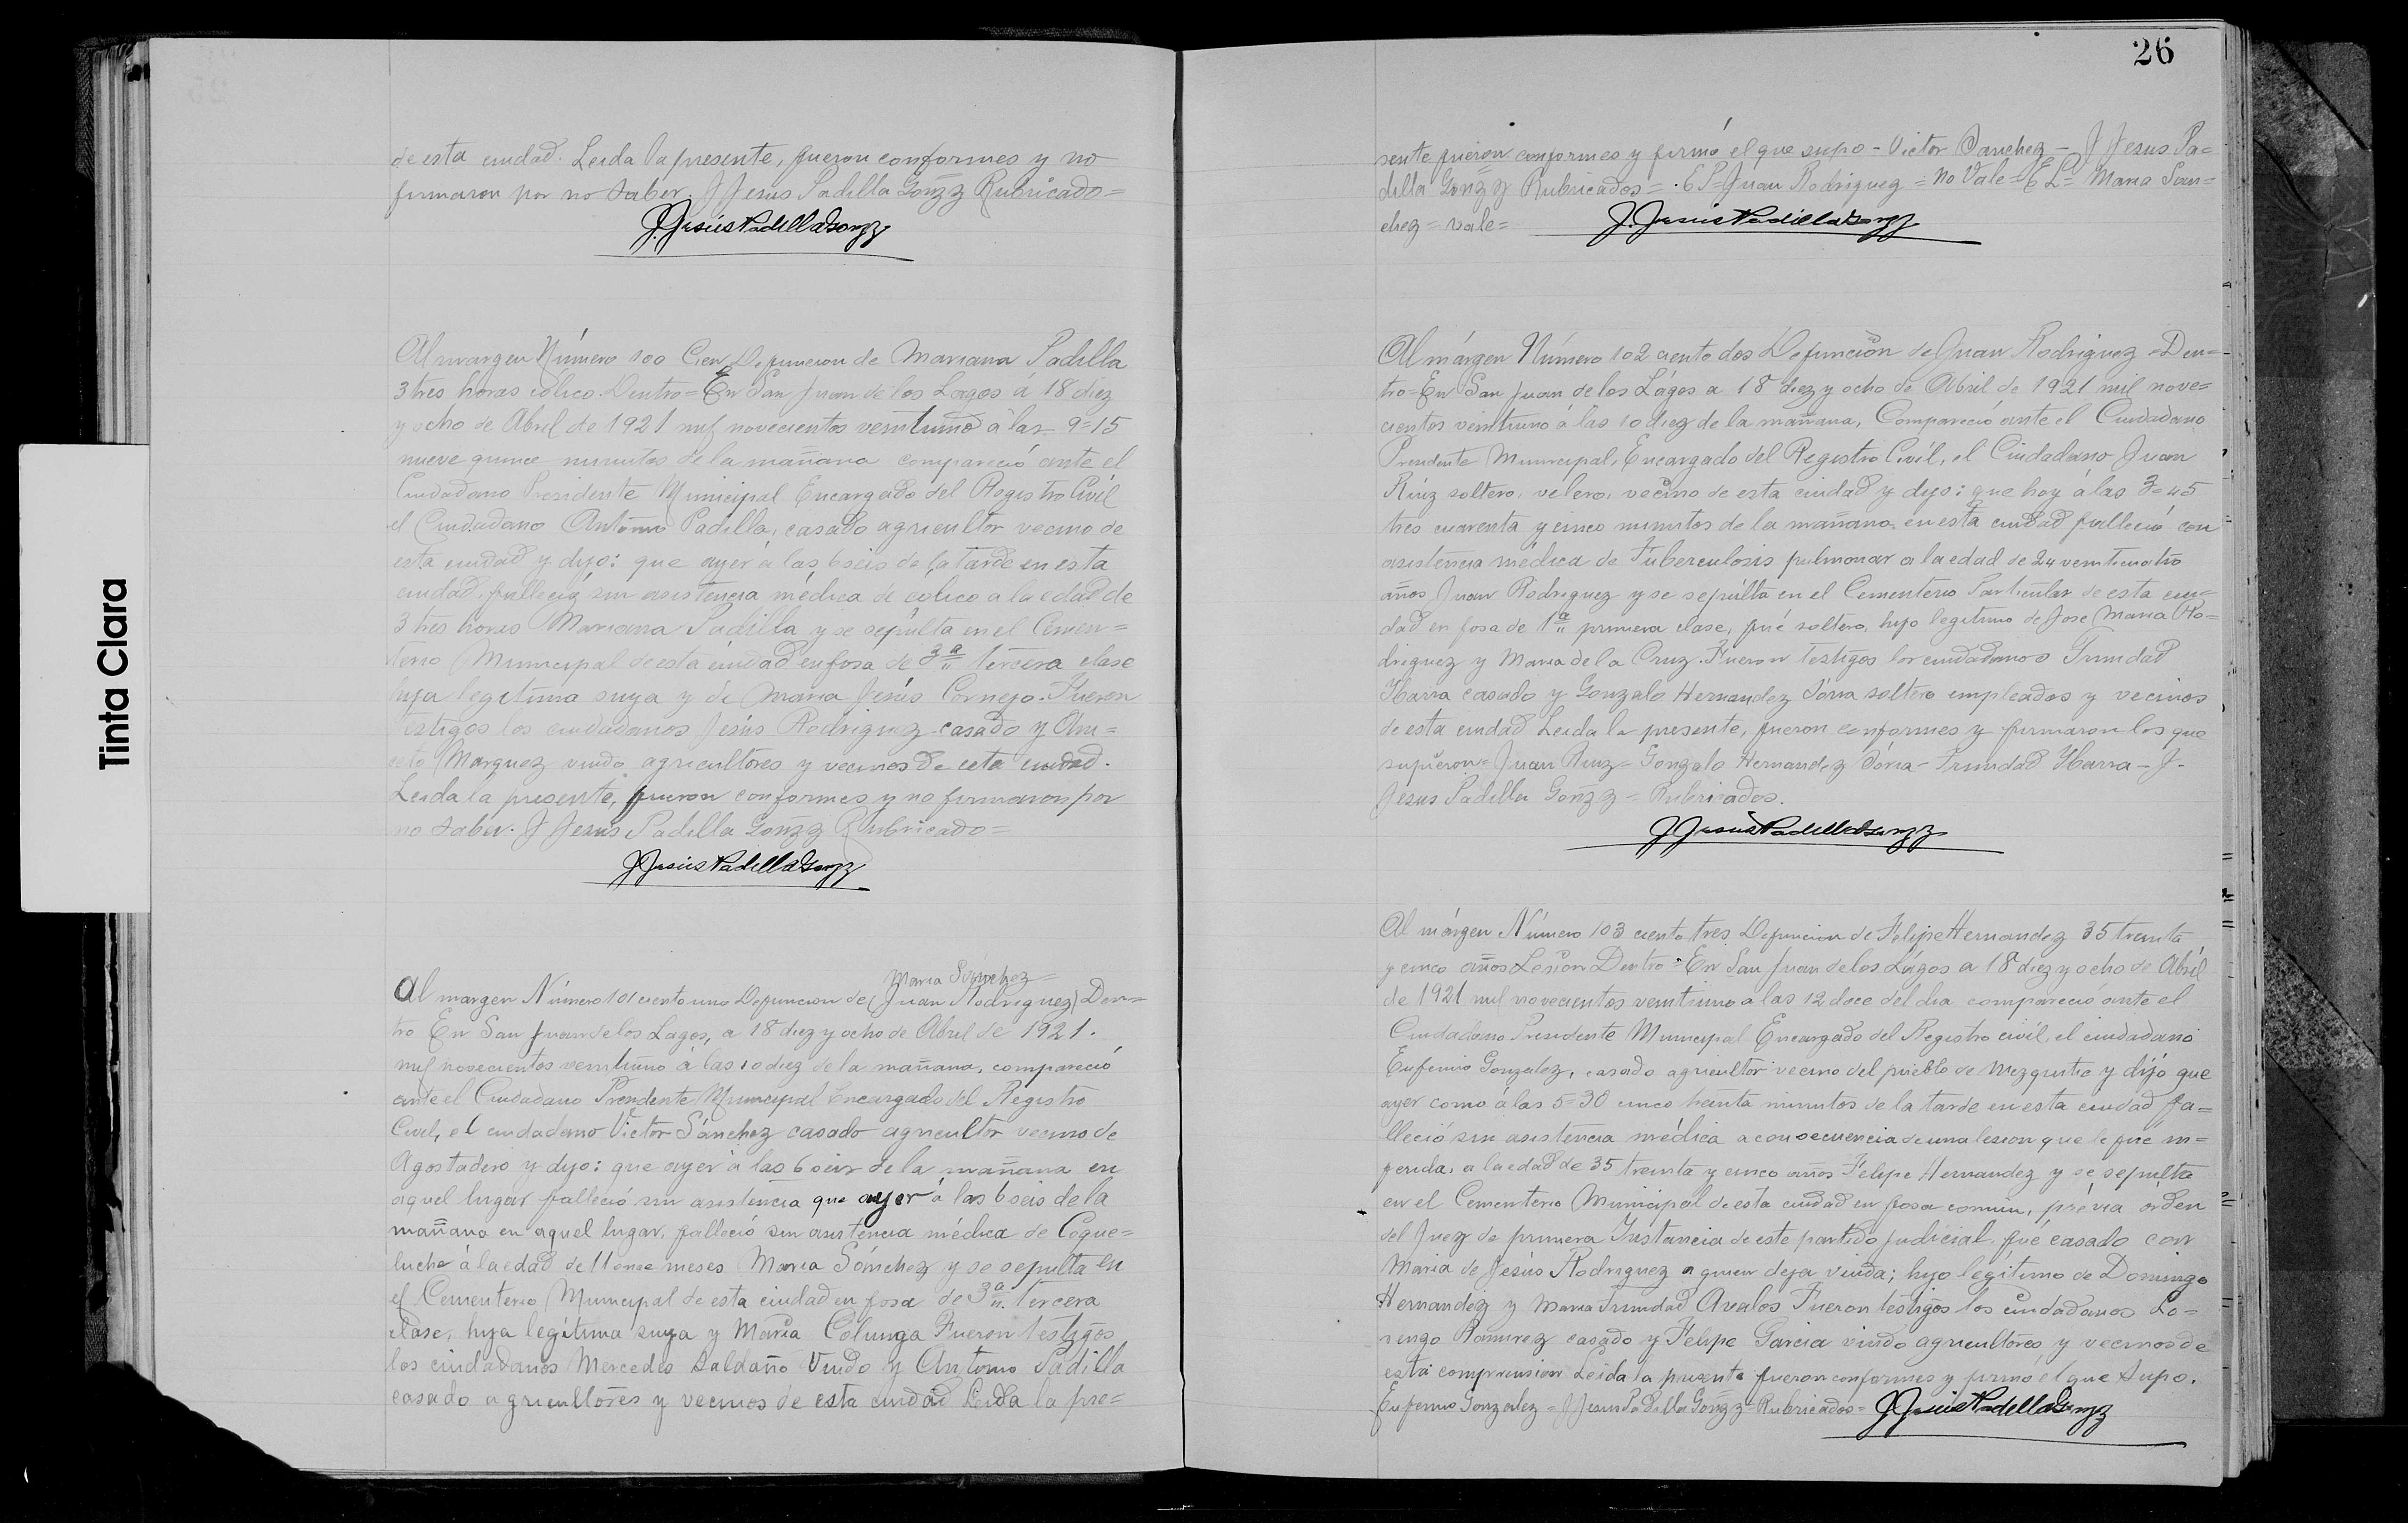 Tinta Clara
de esta ciudad. Leida la presente, fueron conformes y no
firmaron por no saber. J Jesús Padilla Gonzz Rubricado=
J. Jesús Padilla Gonzz
Al margen Número 100 Cien Defuncion de Mariana Padilla
3 tres horas cólico. Dentro= En San Juan de los Lagos a 18 diez
y ocho de Abril de 1921 mil novecientos veintiuno à las 9=15
nueve quince minutos de la mañana compareció ante el
Ciudadano Presidente Municipal Encargado del Registro Civil
el Ciudadano Antonio Padilla, casado agricultor vecino de
esta ciudad y dijo: que ayer à las 6 seis de la tarde en esta
ciudad, falleció sin asistencia médica de cólico a la edad de
3 tres horas Mariana Padilla y se sepulta en el Cemen=
terio Municipal de esta ciudad en fosa de 3ª tercera clase
hija legitima suya y de Maria Jesús Cornejo. Fueron
testigos los ciudadanos Jesús Rodriguez casado y Ani=
ceto Marquez viudo agricultores y vecinos de esta ciudad.
Leida la presente, fueron conformes y no firmaron por
no saber. J Jesús Padilla Gonzz Rubricado=
J Jesús Padilla Gonzz
Maria Sánchez=
Al margen Número 101 ciento uno Defuncion de (Juan Rodriguez) Den=
tro En San Juan de los Lagos, a 18 diez y ocho de Abril de 1921.
mil novecientos veintiuno à las 10 diez de la mañana, compareció
ante el Ciudadano Presidente Municipal Encargado del Registro
Civil, el ciudadano Victor Sánchez casado agricultor vecino de
Agostadero y dijo: que ayer à las 6 seis de la mañana en
aquel lugar falleció sin asistencia que ayer à las 6 seis de la
mañana en aquel lugar, falleció sin asistencia médica de Coque=
luche à la edad de 11 once meses Maria Sánchez y se sepulta en
el Cementerio Municipal de esta ciudad en fosa de 3ª tercera
clase, hija legítima suya y Maria Colunga Fueron testigos
los ciudadanos Mercedes Saldaño Viudo y Antonio Padilla
casado agricultores y vecinos de esta ciudad Leida la pre=
26
sente fueron conformes y firmó el que supo - Victor Sanchez - J Jesus Pa=
dilla Gonzz Rubricados= E P= Juan Rodriguez = No Vale= E L= Maria San=
chez = vale=
J. Jesús Padilla Gonzz
Al márgen Número 102 ciento dos Defunción de Juan Rodriguez =Den=
tro= En San Juan de los Lágos a 18 diez y ocho de Abril de 1921 mil nove=
cientos veintiuno á las 10 diez de la mañana, Compareció ante el Ciudadano
Presidente Municipal, Encargado del Registro Civil, el Ciudadano Juan
Rúiz soltero, velero, vecino de esta ciudad y dijo: que hoy á las 3=45
tres cuarenta y cinco minutos de la mañana en esta ciudad falleció con
asistencia médica de Tuberculosis pulmonar a la edad de 24 veinticuatro
años Juan Rodriguez y se sepúlta en el Cementerio Particular de esta ciu=
dad en fosa de 1ª primera clase, fué soltero, hijo legitimo de Jose Maria Ro=
driguez y Maria de la Cruz. Fueron Testigos los ciudadanos Trinidad
Ybarra casado y Gonzalo Hernandez Dória soltero empleados y vecinos
de esta ciudad Leida la presente, fueron conformes y firmaron los que
supieron= Juan Ruiz= Gonzalo Hernandez Dória- Trinidad Ybarra - J.
Jesus Padilla Gonzz = Rubricados.
J Jesús Padilla Gonzz
Al márgen Número 103 ciento tres Defuncion de Felipe Hernandez 35 treinta
y cinco años Lesion Dentro= En San Juan de los Lágos a 18 diez y ocho de Abril
de 1921 mil novecientos veintiuno a las 12 doce del dia compareció ante el
Ciudadano Presidente Municipal Encargado del Registro civil, el ciudadano
Eufemio Gonzalez, casado agricultor vecino del pueblo de Mezquitic y dijo que
ayer como á las 5=30 cinco treinta minutos de la tarde en esta ciudad fa=
lleció sin asistencia médica a consecuencia de una lesion que le fué in=
ferida, a la edad de 35 treinta y cinco años Felipe Hernandez y se sepulta
en el Cementerio Municipal de esta ciudad en fosa comun, prévia orden
del Juez de primera Instancia de este partido judicial, fué casado con
Maria de Jesús Rodriguez a quien deja viuda; hijo legítimo de Domingo
Hernandez y Maria Trinidad Avalos Fueron testigos los ciudadanos Lo=
renzo Ramirez casado y Felipe Garcia viudo agricultores y vecinos de
esta comprension Leida la presente fueron conformes y firmó el que supo.
Eufemio Gonzalez = J Jesus Padilla Gonzz Rubricados= J Jesús Padilla Gonzz